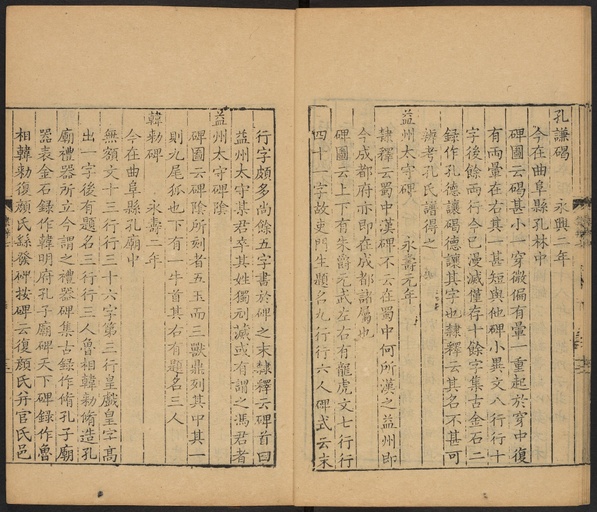 孔謙碣　永興二年
今在曲阜縣孔林中
碑圖云碣甚小一穿微偏有暈一重起於穿中復
有兩暈在右其一甚短與他碑小異文八行行十
字後餘兩行今已漫滅僅存十餘字集古金石二
錄作孔德讓碣德讓其字也隸釋云其名不甚可
辨考孔氏譜得之
益州太守碑　永壽元年
隸釋云蜀中漢碑不云在蜀中何所漢之益州即
今成都府亦即在成都諸屬也
碑圖云上下有朱爵元武左右有龍虎文七行行
四十一字故吏門生題名九行行六人碑式云末
行字頗多尚餘五字書於碑之末隸釋云碑首曰
益州太守某君卒其姓獨刓滅或有謂之馮君者
益州太守碑陰
碑圖云碑陰所刻者五玉而三獸鼎列其中其一
則九尾狐也下有一牛首其右有題名三人
韓勑碑　永壽二年
今在曲阜縣孔廟中
無額文十三行行三十六字第三行皇戲皇字高
出一字後有題名三行行三人魯相韓勑脩造孔
廟禮器所立今謂之禮器碑集古錄作脩孔子廟
器表金石錄作韓明府孔子廟碑天下碑錄作魯
相韓勑復顏氏繇發碑按碑云復顏氏幷官氏邑